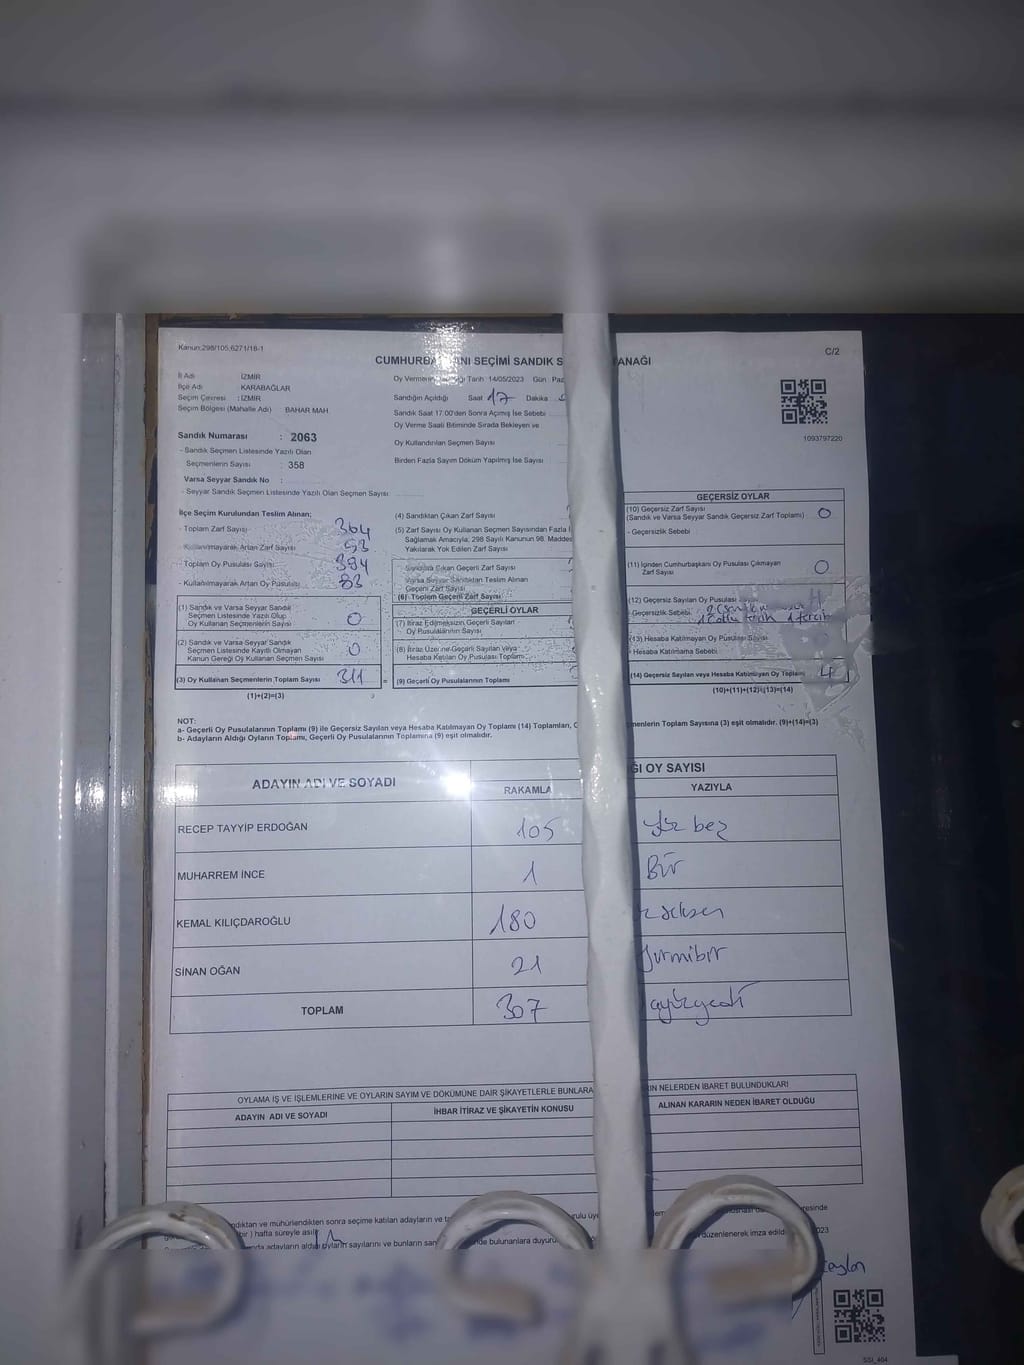 Kanun:298/105,6271/18-1
C/2
CUMHURBA NI SEÇİMİ SANDIK S ANAĞI
İl Adı : İZMİR
İlçe Adı : KARABAĞLAR
Seçim Çevresi : İZMİR
Seçim Bölgesi (Mahalle Adı) BAHAR MAH
Tarih 14/05/2023 Gün Paz
Sandığın Açıldığı Saat 17 Dakika
Sandık Saat 17:00'den Sonra Açılmış İse Sebebi
Oy Verme Saati Bitiminde Sırada Bekleyen ve
Oy Kullandırılan Seçmen Sayısı
Birden Fazla Sayım Döküm Yapılmış İse Sayısı
1093797220
Sandık Numarası : 2063
- Sandık Seçmen Listesinde Yazılı Olan
Seçmenlerin Sayısı : 358
Varsa Seyyar Sandık No :
- Seyyar Sandık Seçmen Listesinde Yazılı Olan Seçmen Sayısı
İlçe Seçim Kurulundan Teslim Alınan;
- Toplam Zarf Sayısı 364
- Kullanılmayarak Artan Zarf Sayısı 53
- Toplam Oy Pusulası Sayısı 394
- Kullanılmayarak Artan Oy Pusulası 83
(1) Sandık ve Varsa Seyyar Sandık
Seçmen Listesinde Yazılı Olup
Oy Kullanan Seçmenlerin Sayısı 0
(2) Sandık ve Varsa Seyyar Sandık
Seçmen Listesinde Kayıtlı Olmayan
Kanun Gereği Oy Kullanan Seçmen Sayısı 0
(3) Oy Kullanan Seçmenlerin Toplam Sayısı 311 =
(1)+(2)=(3)
(4) Sandıktan Çıkan Zarf Sayısı
(5) Zarf Sayısı Oy Kullanan Seçmen Sayısından Fazla
Sağlamak Amacıyla; 298 Sayılı Kanunun 98. Maddes
Yakılarak Yok Edilen Zarf Sayısı
- Sandıkta Çıkan Geçerli Zarf Sayısı
Varsa Seyyar Sandıktan Teslim Alınan
Geçerli Zarf Sayısı
(6) Toplam Geçerli Zarf Sayısı
GEÇERLİ OYLAR
(7) İtiraz Edilmeksizin Geçerli Sayılan
Oy Pusulalarının Sayısı
(8) İtiraz Üzerine Geçerli Sayılan veya
Hesaba Katılan Oy Pusulası Toplamı
(9) Geçerli Oy Pusulalarının Toplamı
GEÇERSİZ OYLAR
(10) Geçersiz Zarf Sayısı
(Sandık ve Varsa Seyyar Sandık Geçersiz Zarf Toplamı) 0
- Geçersizlik Sebebi
(11) İçinden Cumhurbaşkanı Oy Pusulası Çıkmayan
Zarf Sayısı 0
(12) Geçersiz Sayılan Oy Pusulası 4
Geçersizlik Sebebi
(13) Hesaba Katılmayan Oy Pusulası Sayısı
- Hesaba Katılmama Sebebi
(14) Geçersiz Sayılan veya Hesaba Katılmayan Oy Toplamı 4
(10)+(11)+(12)+(13)=(14)
NOT:
a- Geçerli Oy Pusulalarının Toplamı (9) ile Geçersiz Sayılan veya Hesaba Katılmayan Oy Toplamı (14) Toplamları, menlerin Toplam Sayısına (3) eşit olmalıdır. (9)+(14)=(3)
b- Adayların Aldığı Oyların Toplamı, Geçerli Oy Pusulalarının Toplamına (9) eşit olmalıdır.
ADAYIN ADI VE SOYADI
ĞI OY SAYISI
RAKAMLA YAZIYLA
RECEP TAYYİP ERDOĞAN 105 Yüz beş
MUHARREM İNCE 1 Bir
KEMAL KILIÇDAROĞLU 180 seksen
SİNAN OĞAN 21 Yirmibir
TOPLAM 307 yüzyedi
OYLAMA İŞ VE İŞLEMLERİNE VE OYLARIN SAYIM VE DÖKÜMÜNE DAİR ŞİKAYETLERLE BUNLARA IN NELERDEN İBARET BULUNDUKLARI
ADAYIN ADI VE SOYADI İHBAR İTİRAZ VE ŞİKAYETİN KONUSU ALINAN KARARIN NEDEN İBARET OLDUĞU
ndıktan ve mühürlendikten sonra seçime katılan adayların ve
bir ) hafta süreyle
düzenlenerek imza edild 023
adayların aldığı oyların sayılarını ve bunların
bulunanlara duyuru
Ceylan
SSI_404